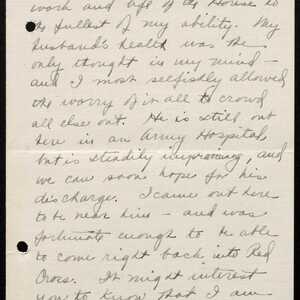 work and life of the House to
the fullest of my ability. My
husband's health was the
only thought in my mind -
and I most selfishly allowed
the worry of it all to crowd
all else out. He is still out
here in an Army Hospital,
but is steadily improving, and
we can soon hope for his
discharge. I came out here
to be near him - and was
fortunate enough to be able
to come right back into Red
Cross. It might interest
you to know that I am